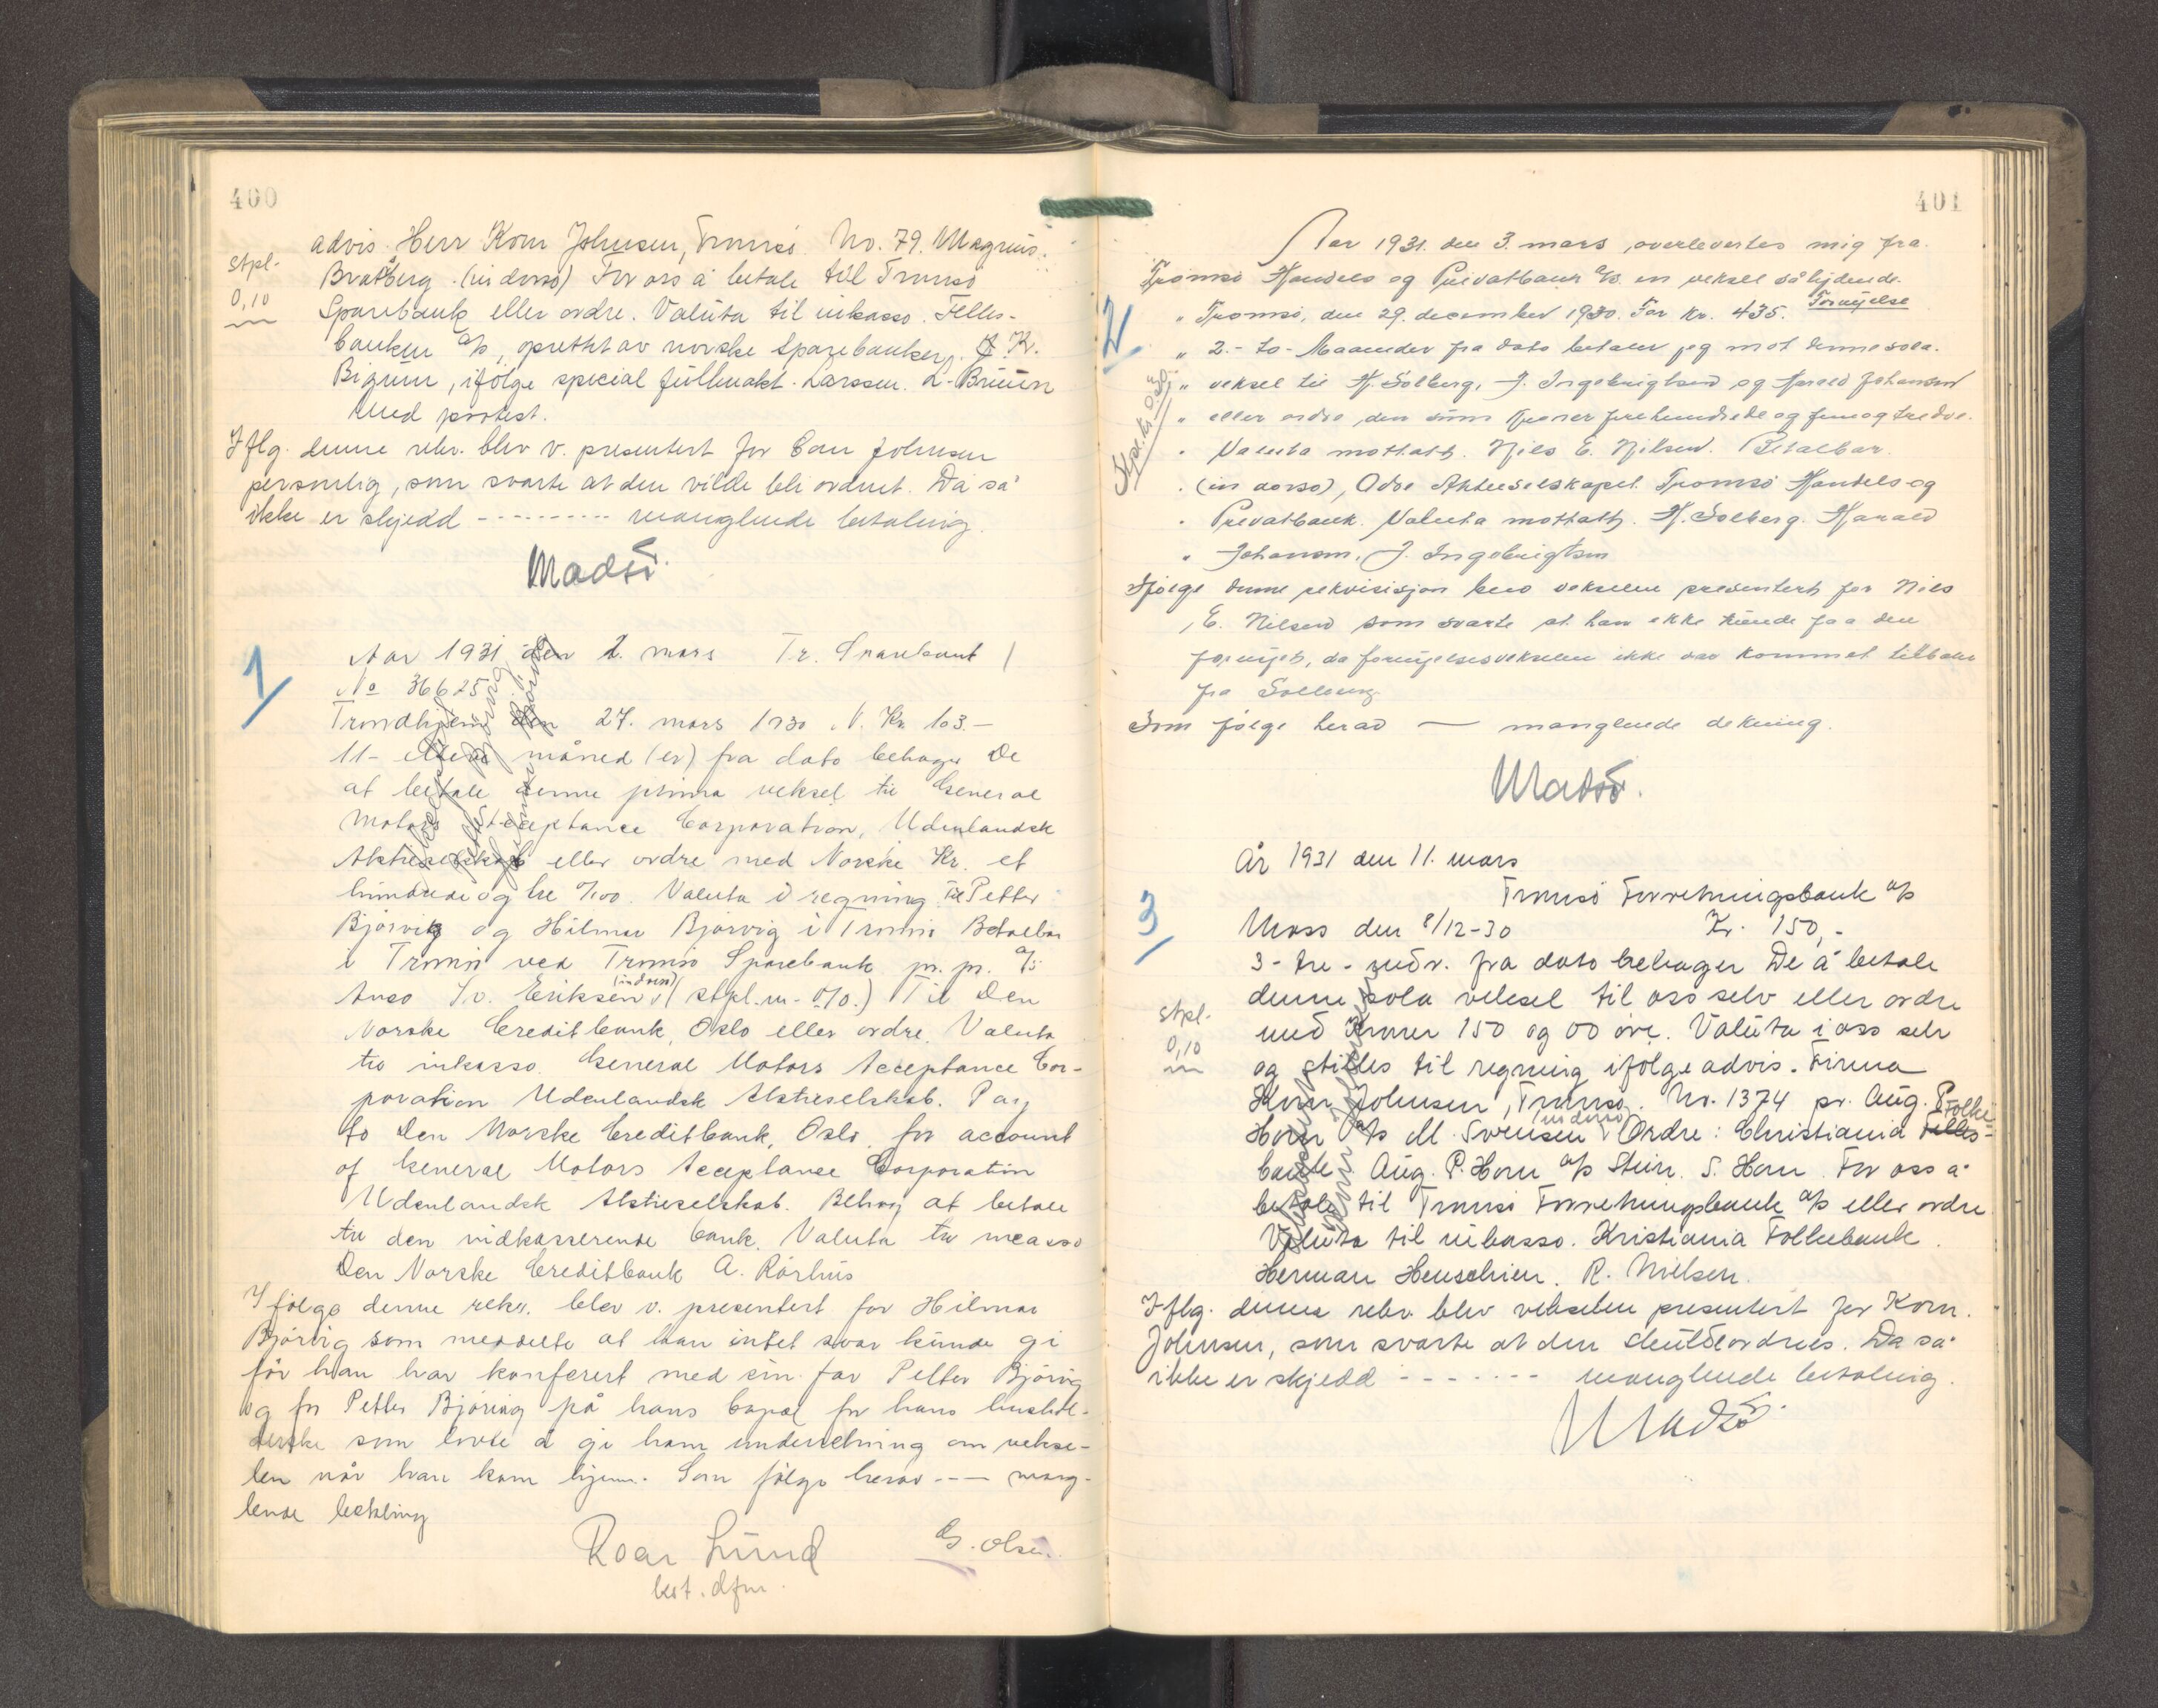 400
advis. Herr Korn Johnsen, Tromsö No. 79. Magnus
stpl. 0,10
Bratberg. (in dorso) For oss å betale til Tromsö
Sparebank eller ordre. Valuta til inkasso. Felles-
banken a/s, oprettet av norske Sparebanker. K.
Bignum, ifölge special fullmakt. Larssen. L. Bruun
Uned protest.
Iflg. denne rekv. blev v. presentert for Corn Johnsen
personlig, som svarte at den vilde bli ordnet. Da så
ikke er skjedd ---------- manglende betaling.
Madsö.
1
Aar 1931 den 2. mars Tr. Sparebank
No 36625
Trondhjem den 27. mars 1930 N. Kr. 103.-
11- elleve måned (er) fra dato behager De
at betale denne prima veksel til General
Motors Acceptance Corporation, Udenlandsk
Aktieselskab eller ordre med Norske Kr. et
hundrede og tre 0/100. Valuta i regning. Til Petter
Bjørvig og Hilmar Bjørvig i Tromsö Betalbar
i Tromsö ved Tromsö Sparebank pr. pr. a/s
Auso Sv. Eriksen (in dorso) (stpl. m. 0/0.) Til Den
Norske Creditbank, Oslo eller ordre. Valuta
til inkasso. General Motors Acceptance Cor-
poration Udenlandsk Aktieselskab. Pay
to Den Norske Creditbank, Oslo, for account
of General Motors Acceptance Corporation
Udenlandsk Aktieselskab. Behag at betale
til den indkasserende bank. Valuta til incasso
Den Norske Creditbank A. Rörhus
Ifölge denne rekv. blev v. presentert for Hilmar
Bjørvig som meddelte at han intet svar kunde gi
før han har konferert med sin far Petter Bjørvig
og for Petter Bjørvig på hans bopæl for hans hushol-
derske som lovte å gi ham underretning om vekse-
len når han kom hjem. Som fölge herav --- mang-
lende betaling
Roar Lund
G. Olsen.
kst. dfm.
401
Aar 1931. den 3. mars, overlevertes mig fra
Tromsö Handels og Privatbank a/s. en veksel sålydende.
2
" Tromsö, den 29. december 1930. For Kr. 435. Fornyelse
" 2.- to- Maaneder fra dato betaler jeg mot denne sola-
" veksel til H. Solberg, J. Ingebrigtsen og Harald Johansen
" eller ordre, den sum kroner firehundrede og femogtredve.
" Valuta mottatt. Nils E. Nilsen. Betalbar.
" (in dorso), Ordre Aktieselskapet Tromsö Handels og
" Privatbank. Valuta mottatt. H. Solberg. Harald
" Johansen. J. Ingebrigtsen
Ifölge denne rekvisisjon blev vekselen presentert for Nils
E. Nilsen som svarte at han ikke kunde faa den
fornyet, da fornyelsesvekselen ikke var kommet tilbake
fra Solberg.
Som fölge herav — manglende dekning.
Madsö.
3
År 1931 den 11. mars
Tromsö Forretningsbank a/s
Moss den 8/12-30 Kr. 150,-
3- tre- mdr. fra dato behager De å betale
stpl. 0,10
denne sola veksel til oss selv eller ordre
med Kroner 150 og 00 öre. Valuta i oss selv
og stilles til regning ifölge advis. Firma
Korn Johnsen, Tromsö. No. 1374 pr. Aug. P.
Horn a/s M. Svensen in dorso Ordre: Christiania Folke-
bank. Aug. P. Horn a/s Stein. S. Horn. For oss å
betale til Tromsö Forretningsbank a/s eller ordre
Valuta til inkasso. Kristiania Folkebank.
Herman Henschien. R. Nielsen.
Iflg. denne rekv. blev vekselen presentert for Korn.
Johnsen, som svarte at den skulde ordnes. Da så
ikke er skjedd ------- manglende betaling.
Madsö.